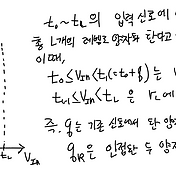 t₀~t_L의 입력 신호에
총 L개의 레벨로 양자화 한다고
이때,
t₀≤V_IN<t₁(=t₀+q)는
t_{L-1}≤V_IN<t_L은 r_L에
즉, q는 기존 신호에서 한
q_R은 인접한 두
t_L V_IN